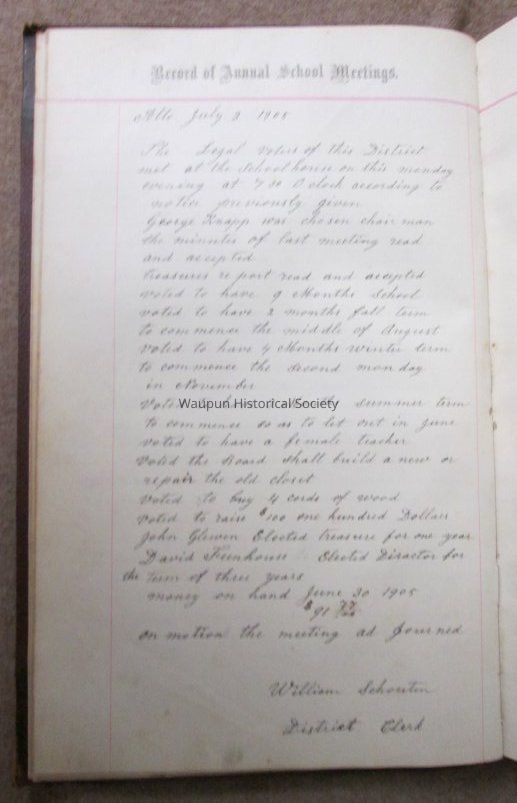 Record of Annual School Meetings.
Alto July 3 1905
The Legal voters of this District
met at the School house on this monday
evening at 7 00 O clock according to
notice previously given
George Knapp was chosen chair man
the minutes of last meeting read
and accepted
treasures re port read and accepted
voted to have 9 Months School
voted to have 2 months fall term
to commence the middle of August
voted to have 4 Months winter term
to commence the Second monday
in November
Voted summer term
Waupun Historical Society
to commence so as to let out in June
voted to have a female teacher
Voted the Board shall build a new or
repair the old closet
voted to buy 4 cords of wood
voted to raise $100 one hundred Dollars
John Elected treasure for one year
David Elected Director for
the term of three years
money on hand June 30 1905
$91
on motion the meeting ad Journed
William
District Clerk